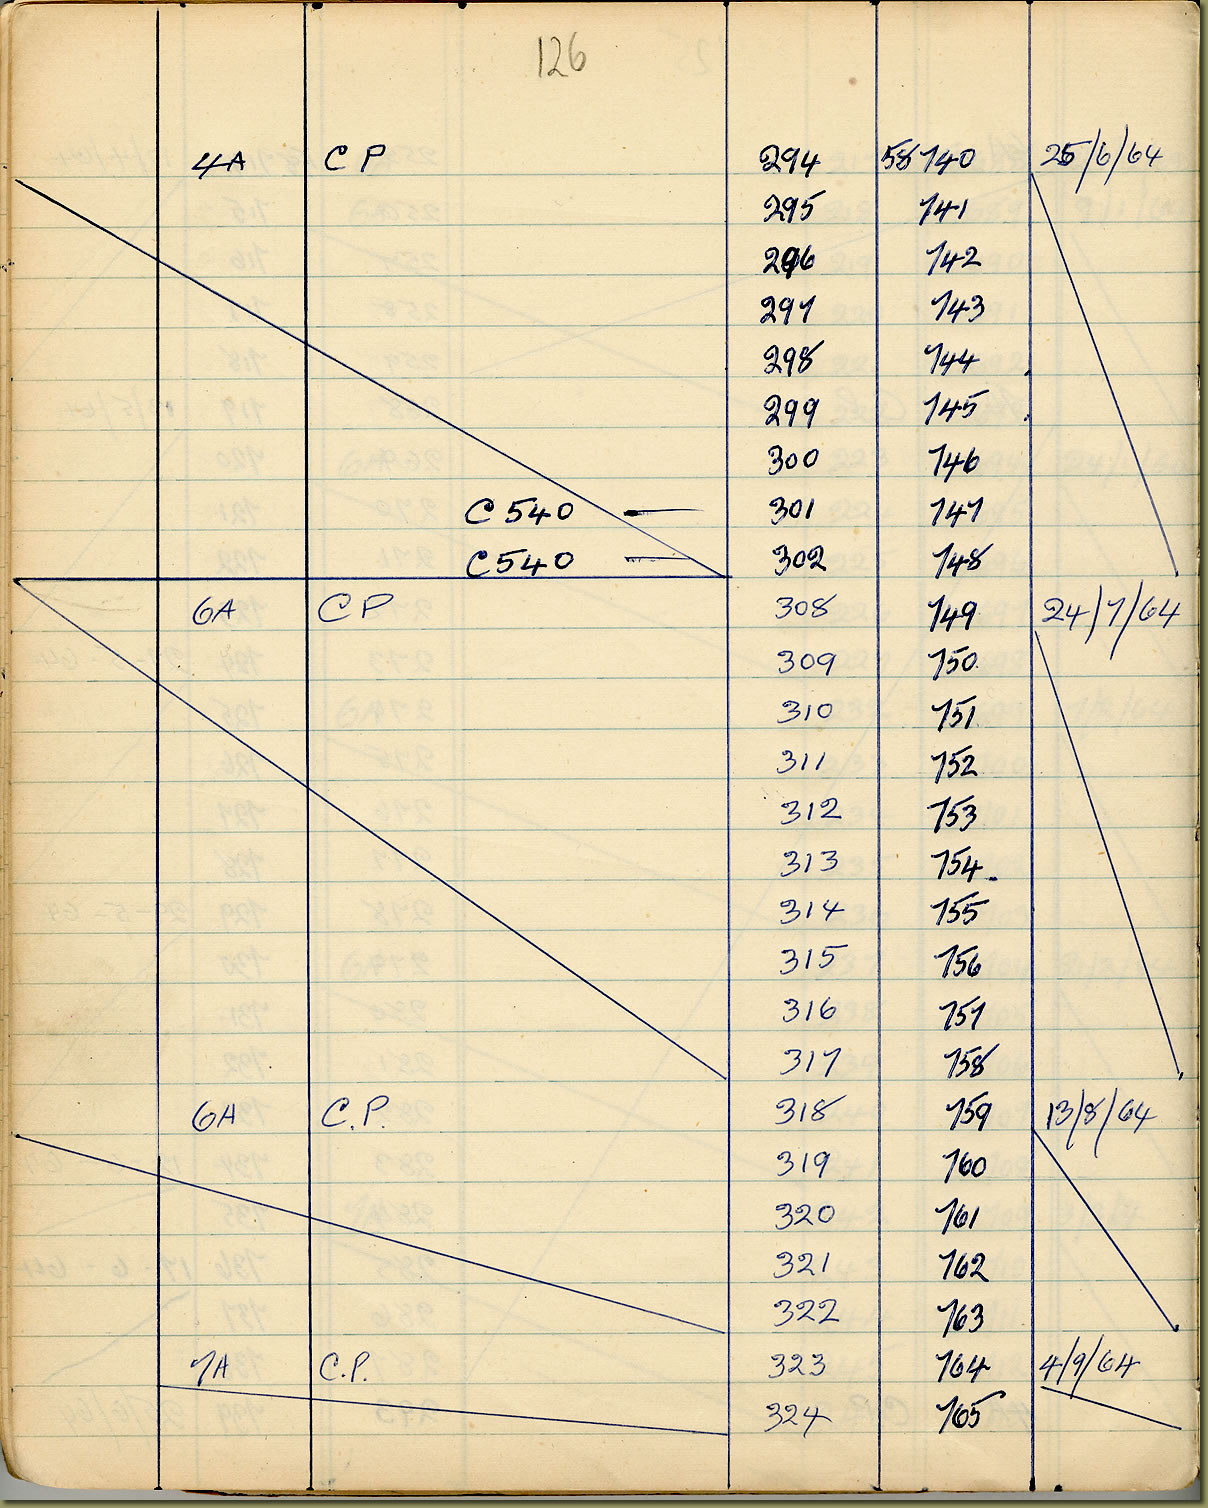 126
4A C P 294 58740 25/6/64
295 741
296 742
297 743
298 744
299 745
300 746
C540 — 301 747
C540 — 302 748
6A C P 308 749 24/7/64
309 750
310 751
311 752
312 753
313 754
314 755
315 756
316 757
317 758
6A C.P. 318 759 13/8/64
319 760
320 761
321 762
322 763
7A C.P. 323 764 4/9/64
324 765